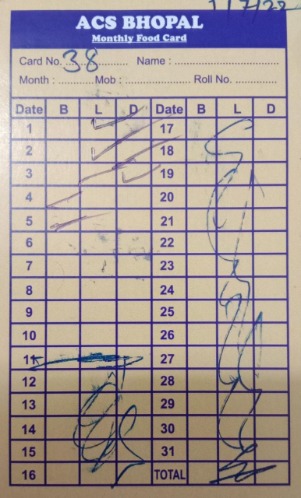 1/7/22
ACS BHOPAL
Monthly Food Card
Card No. 38 Name :
Month : Mob : Roll No.
Date B L D Date B L D
1 17
2 18
3 19
4 20
5 21
6 22
7 23
8 24
9 25
10 26
11 27
12 28
13 29
14 30
15 31
16 TOTAL